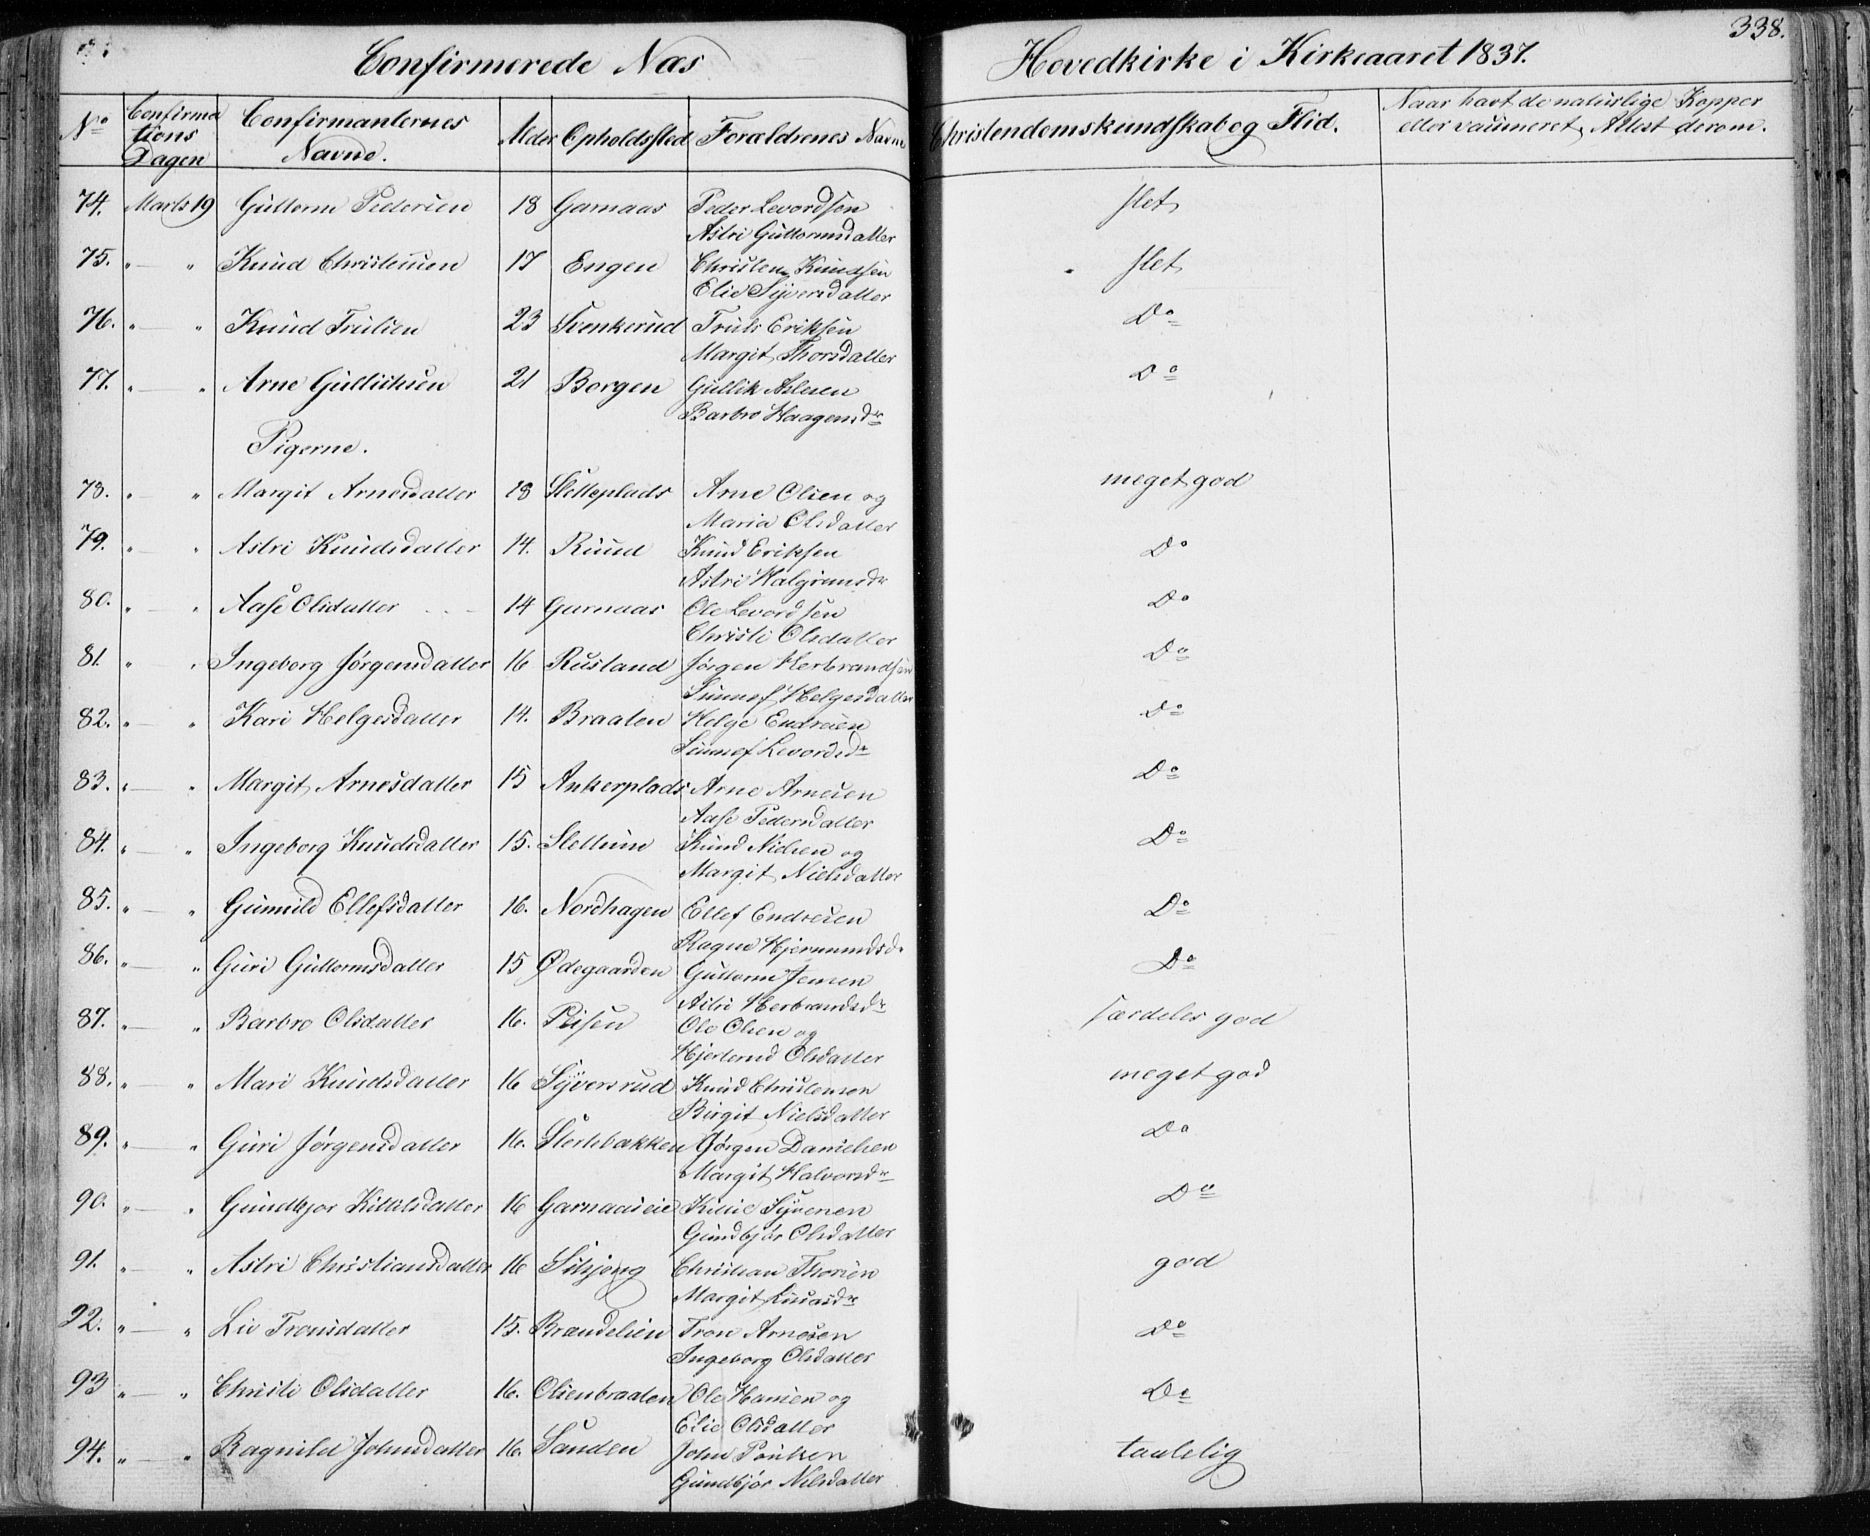 338.
Confirmerede Næs Hovedkirke i Kirkeaaret 1837.
No Confirmations Dagen Confirmanternes Navne. Alder Opholdssted Forældrenes Navne Christendomskundskab og Flid. Naar havt de naturlige Kopper eller vaccineret, Attest derom.
74. Marts 19 Guttorm Pedersen 18 Garnaas Peder Levordsen slet
Astri Guttormsdatter
75. " — " Knud Christensen 17 Engen Christen Knudsen slet
Elie Syversdatter
76. " — " Knud Trulsen 23 Svenkerud Truls Eriksen Do
Margit Thorsdatter
77. " — " Arne Gulliksen 21 Borgen Gullik Aslesen Do
Barbro Haagensdr
Pigerne.
78. " " Margit Arnesdatter 18 Sletteplads Arne Olsen og meget god
Maria Olsdatter
79. " — " Astri Knudsdatter 14. Ruud Knud Eriksen Do
Astri Halgrimsdr
80. " — " Aase Olsdatter 14 Garnaas Ole Levordsen Do
Christi Olsdatter
81. " " Ingeborg Jørgensdatter 16 Rusland Jørgen Herbrandsen Do
Sunnef Helgesdatter
82. " — " Kari Helgesdatter 14. Braaten Helge Endresen Do
Sunnef Levordsdr
83. " — " Margit Arnesdatter 15 Ankerplads Arne Arnesen Do
Aase Pedersdatter
84. " — " Ingeborg Knudsdatter 15. Slettum Knud Nielsen og Do
Margit Nielsdatter
85. " — " Gunnild Ellefsdatter 16. Nordhagen Ellef Endresen Do
Ragne Hjermundsd.
86. " — " Guri Guttormsdatter 15 Ødegaarden Guttorm Jensen Do
Astri Herbrandsdr
87. " — " Barbro Olsdatter 16. Ole Olsen og særdeles god
Hjertrud Olsdatter
88. " — " Mari Knudsdatter 16 Syversrud Knud Christensen meget god
Birgit Nielsdatter
89. " — " Guri Jørgensdatter 16. Jørgen Danielsen Do
Margit Halvorsdr
90. " — " Gundbjor Kittilsdatter 16 Garnaaseie Syversen Do
Gundbjør Olsdatter
91. " — " Astri Christiansdatter 16 Christian Thorsen god
Margit
92. " — " Liv Tronsdatter 15. Brændelien Tron Arnesen Do
Ingeborg Olsdatter
93 " — " Christi Olsdatter 16. Olienbraaten Ole Hansen og Do
Elie Olsdatter
94. " — " Ragnild Johnsdatter 16. Sanden John taalelig
Gundbjør Nilsdatter